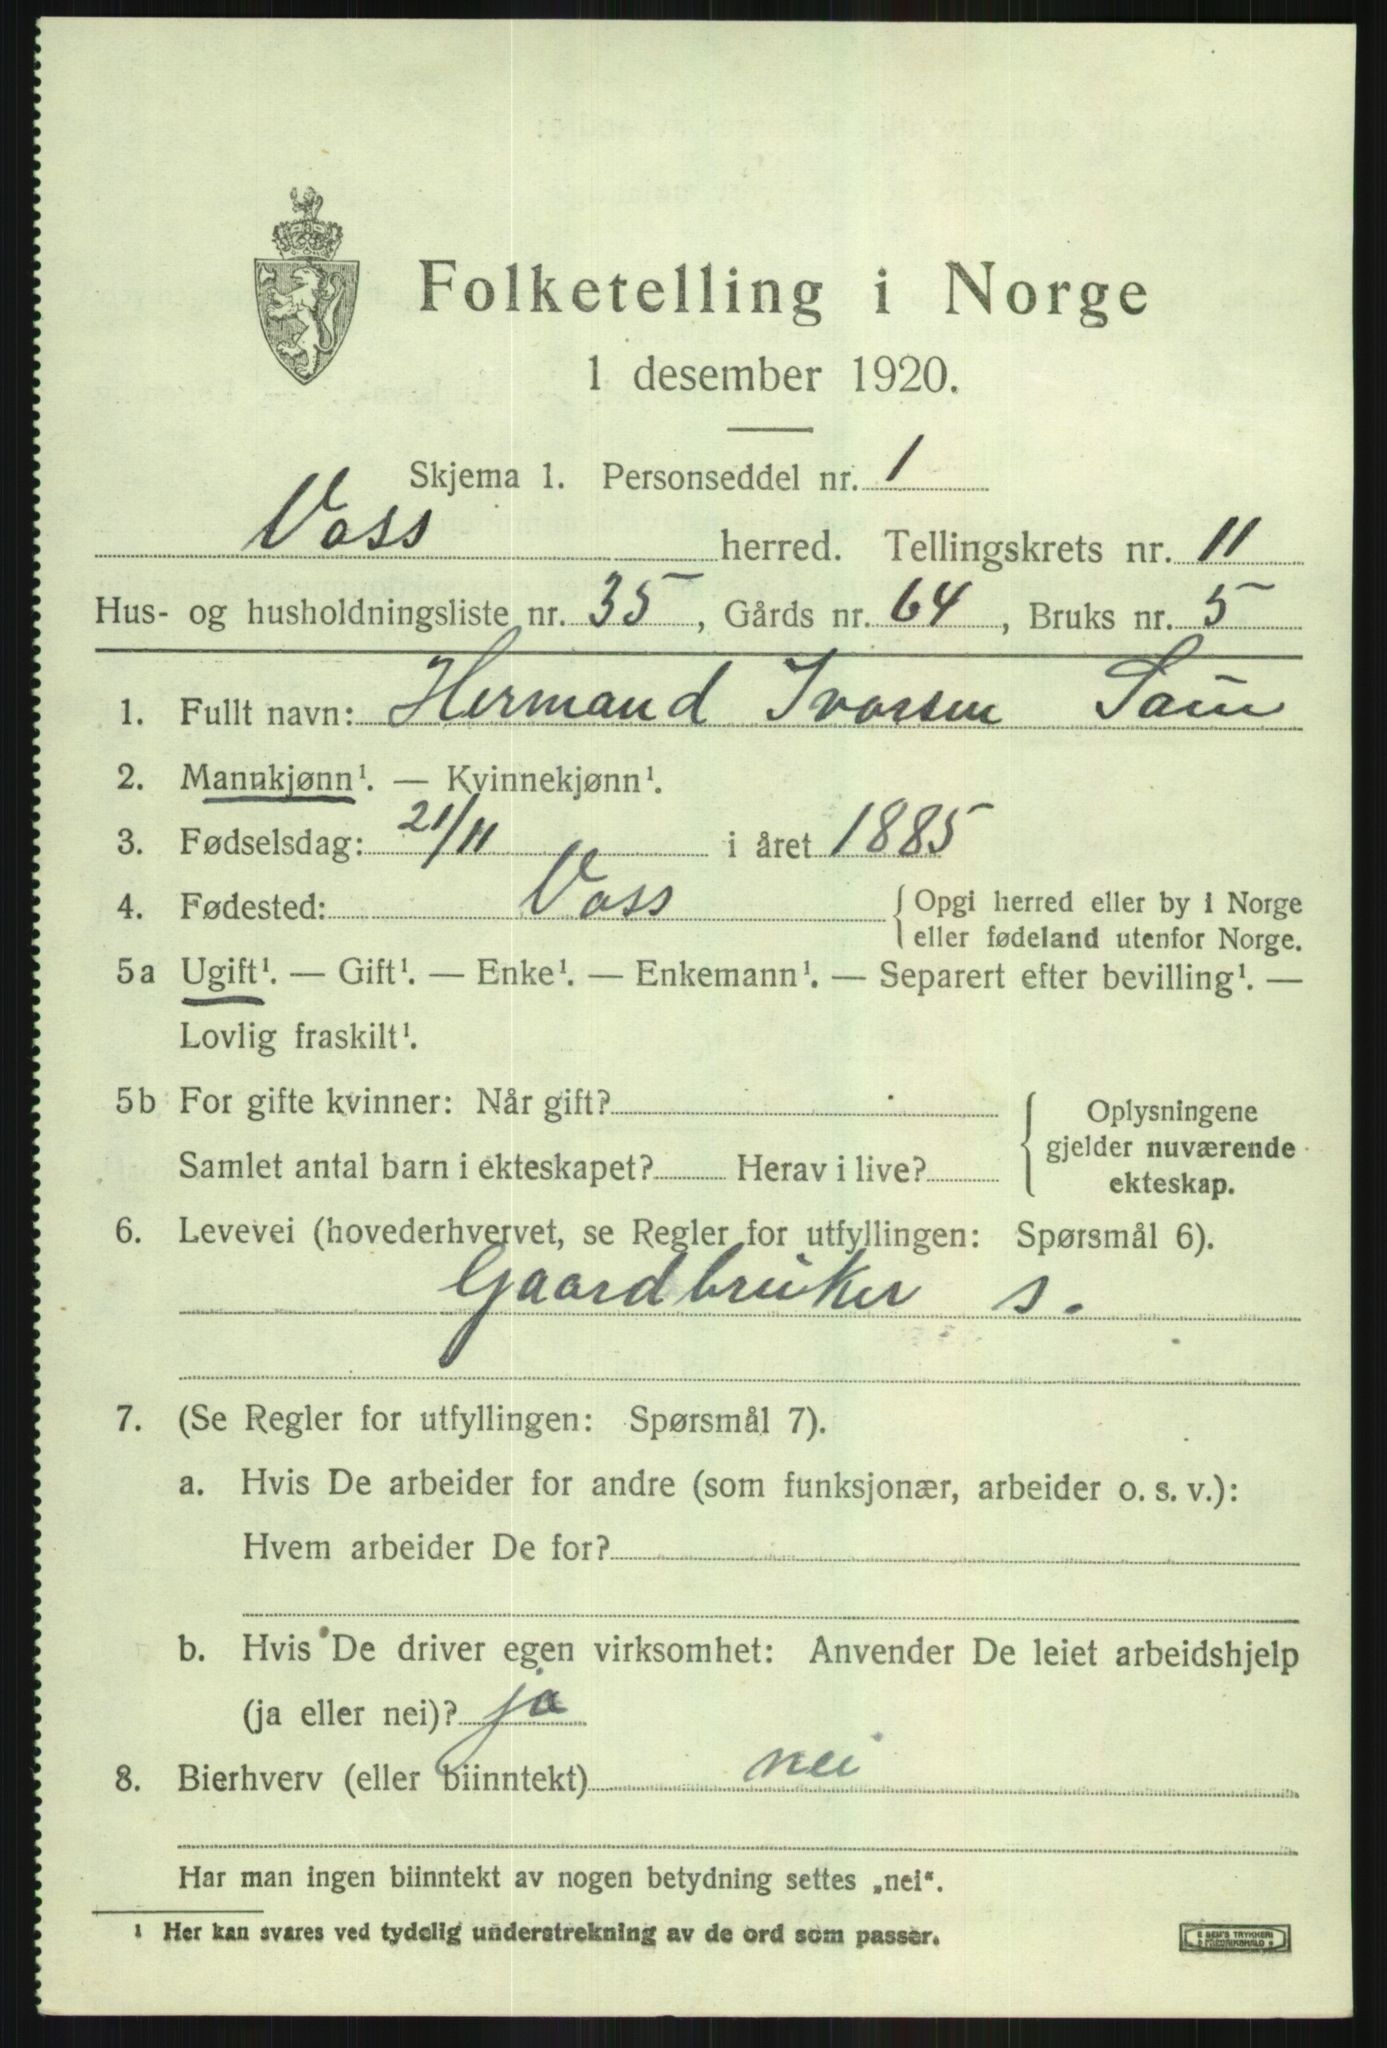 Folketelling i Norge
1 desember 1920.
Skjema 1. Personseddel nr. 1
Voss herred. Tellingskrets nr. 11
Hus- og husholdningsliste nr. 35, Gårds nr. 64, Bruks nr. 5
1. Fullt navn: Hermand Ivarsen
2. Mannkjønn¹. — Kvinnekjønn¹.
3. Fødselsdag: 21/11 i året 1885
4. Fødested: Voss { Opgi herred eller by i Norge
eller fødeland utenfor Norge.
5a Ugift¹. — Gift¹. — Enke¹. — Enkemann¹. — Separert efter bevilling¹. —
Lovlig fraskilt¹.
5b For gifte kvinner: Når gift?
Samlet antal barn i ekteskapet? Herav i live?
{ Oplysningene
gjelder nuværende
ekteskap.
6. Levevei (hovederhvervet, se Regler for utfyllingen: Spørsmål 6).
Gaardbruker s.
7. (Se Regler for utfyllingen: Spørsmål 7).
a. Hvis De arbeider for andre (som funksjonær, arbeider o. s. v.):
Hvem arbeider De for?
b. Hvis De driver egen virksomhet: Anvender De leiet arbeidshjelp
(ja eller nei)? ja
8. Bierhverv (eller biinntekt) nei
Har man ingen biinntekt av nogen betydning settes „nei“.
¹ Her kan svares ved tydelig understrekning av de ord som passer.